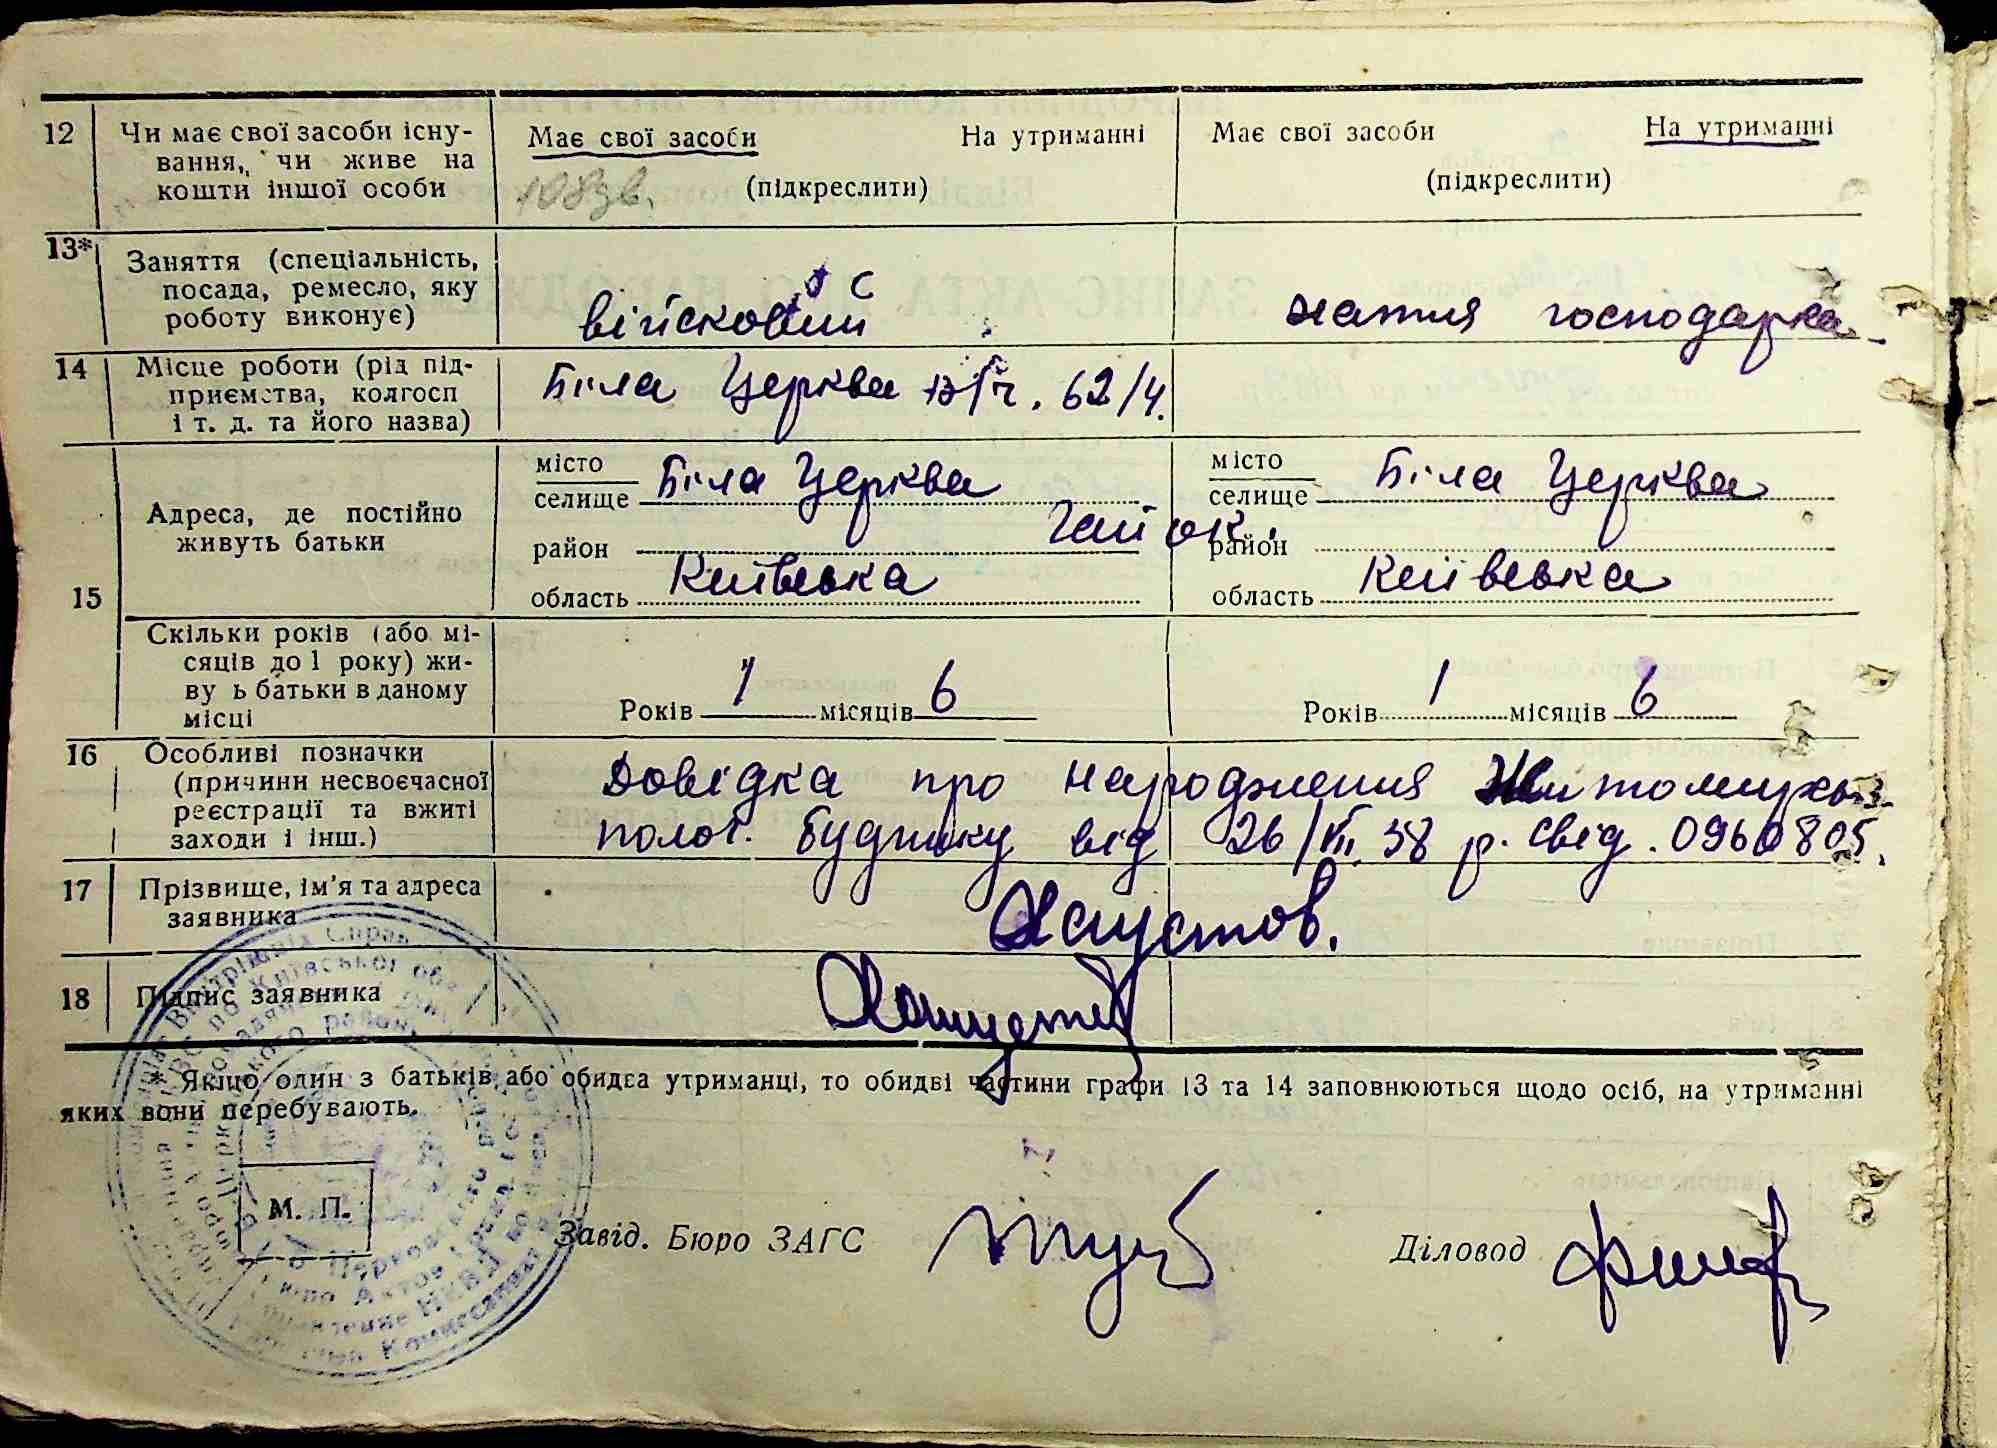 12 Чи має свої засоби існу-
вання, чи живе на
кошти іншої особи
Має свої засоби На утриманні
(підкреслити)
Має свої засоби На утриманні
(підкреслити)
13* Заняття (спеціальність,
посада, ремесло, яку
роботу виконує)
військовий
хатня господарка
14 Місце роботи (рід під-
приємства, колгосп
і т. д. та його назва)
Біла Церква в/ч. 62/4.
15 Адреса, де постійно
живуть батьки
місто
селище Біла Церква
район Гайок.
область Київська
місто
селище Біла Церква
район
область Київська
15
Скільки років (або мі-
сяців до 1 року) жи-
ву ь батьки в даному
місці
Років 1 місяців 6
Років 1 місяців 6
16 Особливі позначки
(причини несвоєчасної
реєстрації та вжиті
заходи і інш.)
Довідка про народження
полог. будинку від 26/VII. 38 р. свід. 0960805.
17 Прізвище, ім'я та адреса
заявника
Хаустов.
18 Підпис заявника
* Якщо один з батьків, або обидва утриманці, то обидві частини графи 13 та 14 заповнюються щодо осіб, на утриманні
яких вони перебувають.
М. П.
Завід. Бюро ЗАГС
Діловод